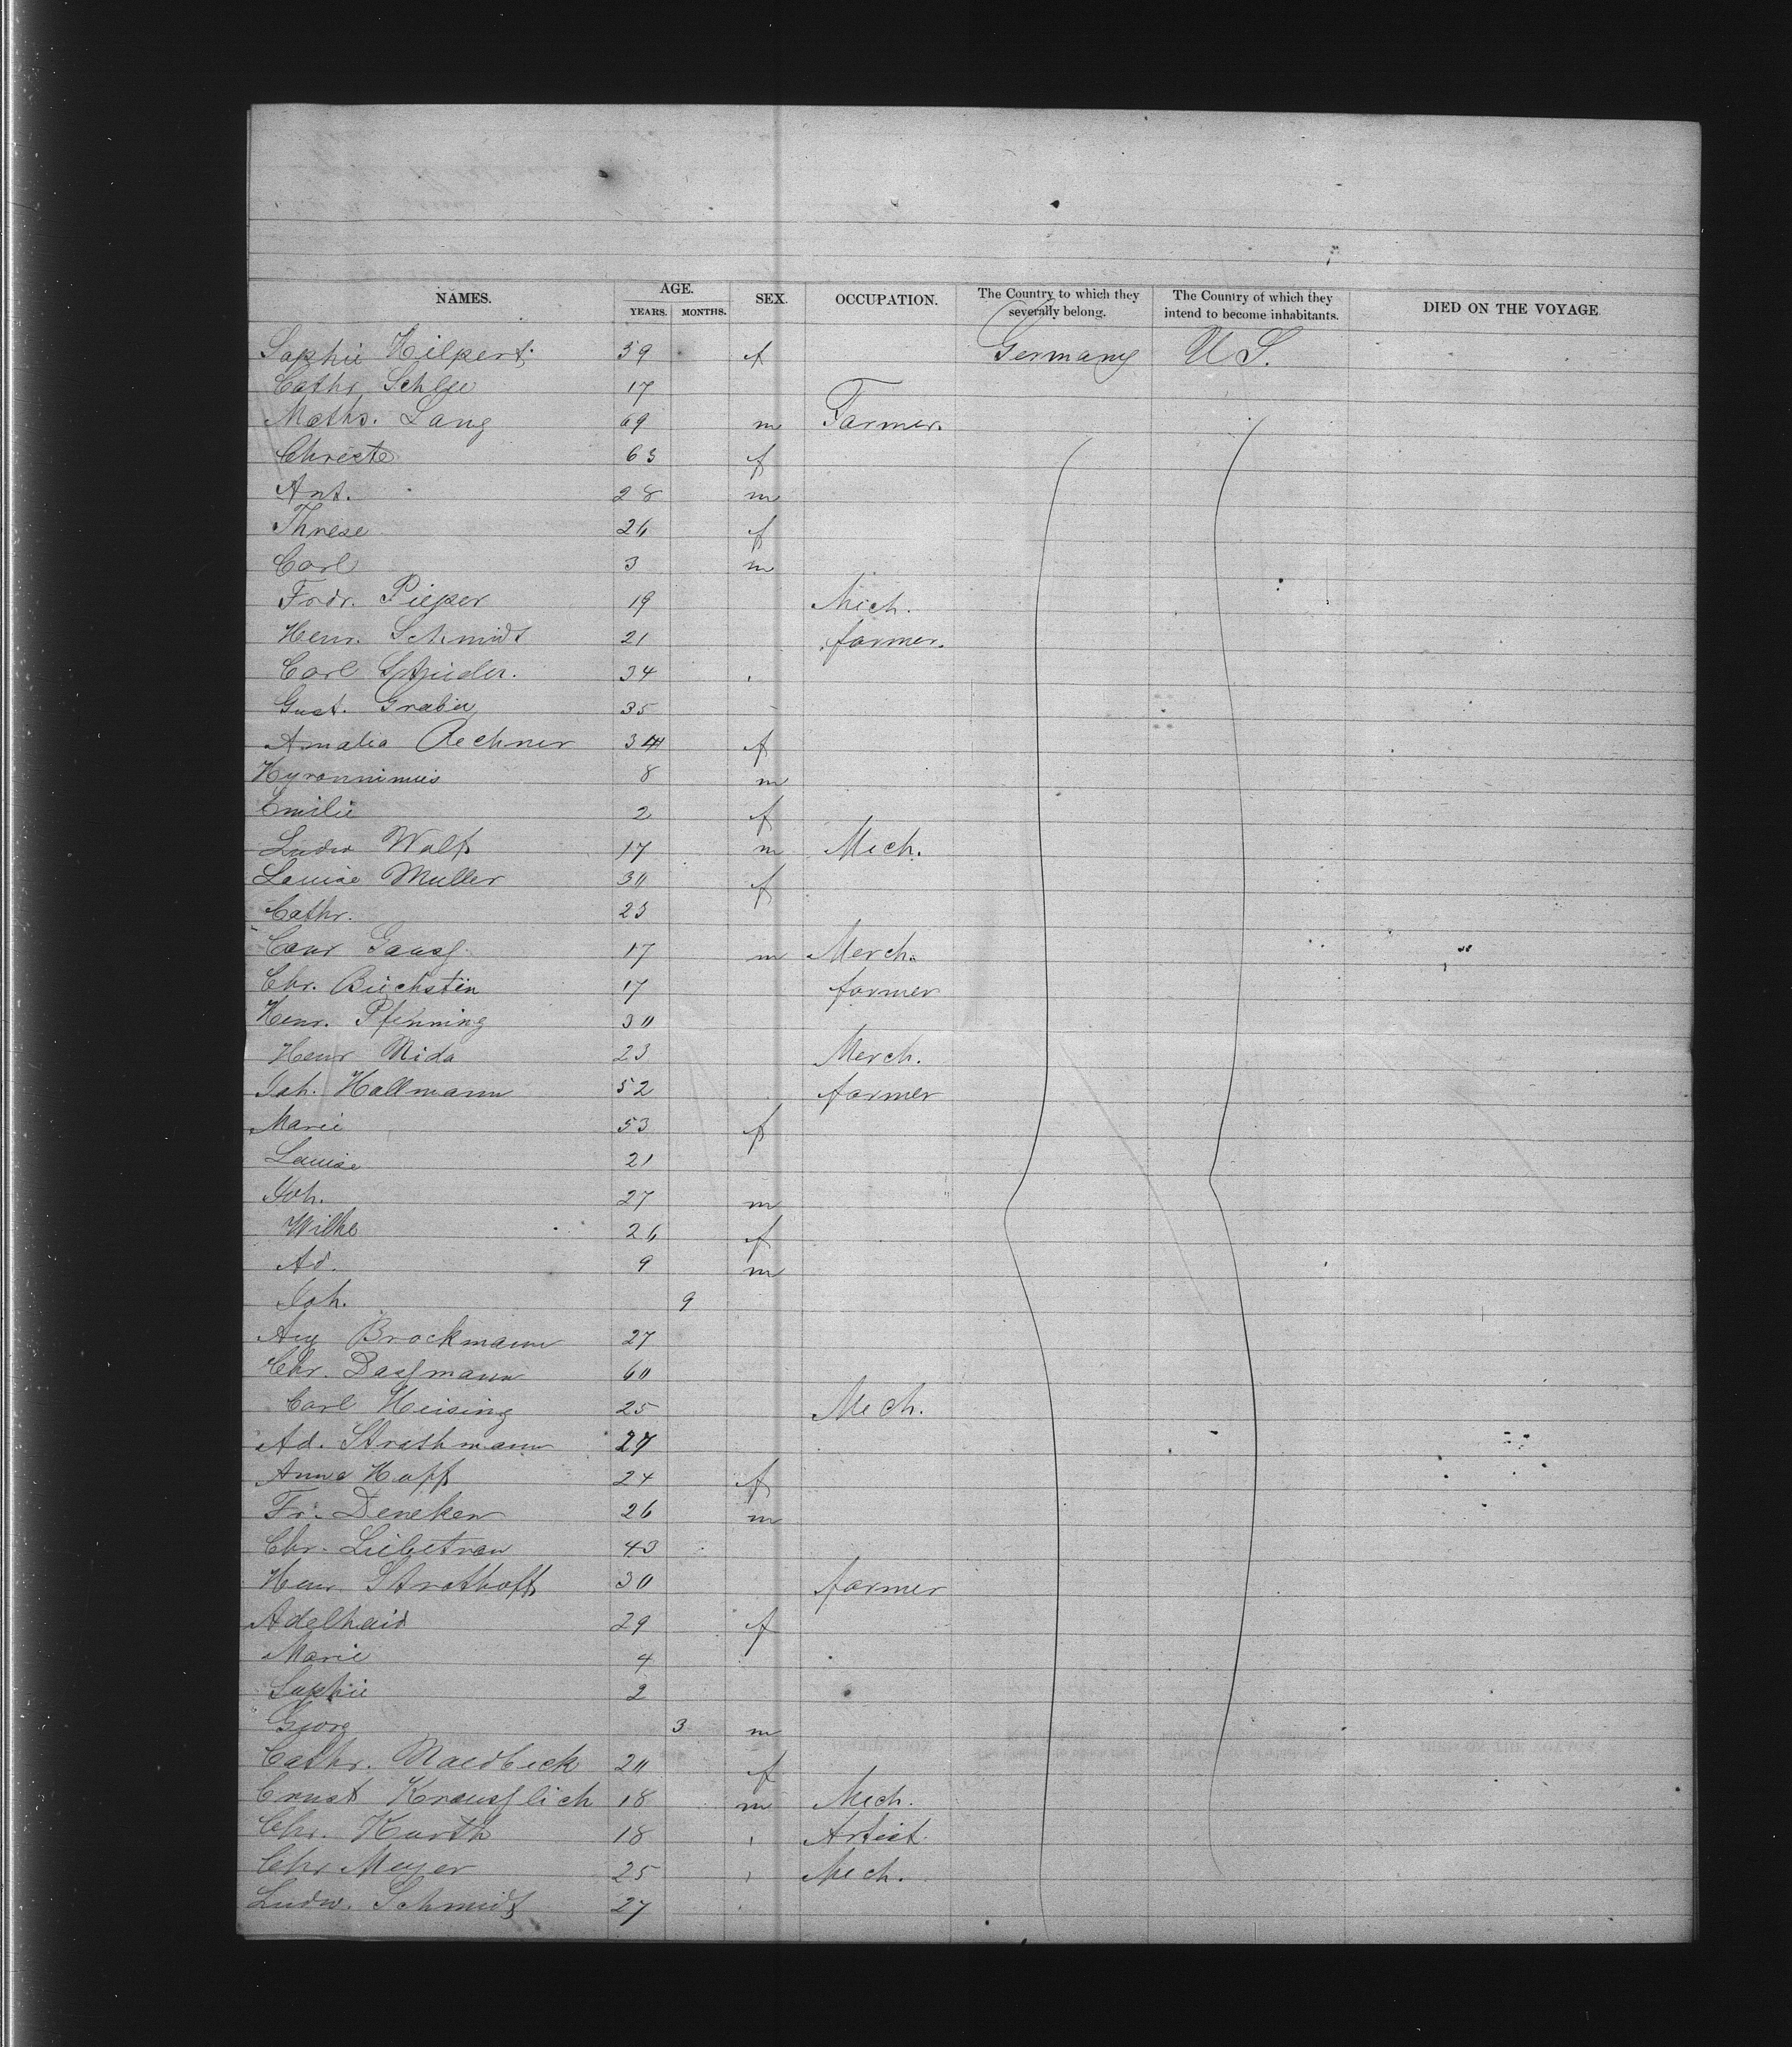 NAMES. AGE. SEX. OCCUPATION. The Country to which they severally belong. The Country of which they intend to become inhabitants. DIED ON THE VOYAGE
YEARS. MONTHS.
Sophie Hilpert 59 f Germany U S.
Cathr Schlee 17
Maths. Lang 69 m Farmer.
Christe 63 f
Ant. 28 m
Threse 26 f
Carl 3 m
Fredr. Pieper 19 Mech.
Henr. Schmidt 21 farmer.
Carl 34
Gust. Graber 35
Amalia Rechner 34 f
Hyronnimus 8 m
Emilie 2 f
Ludw Wolf 17 m Mech.
Louise Muller 30 f
Cathr. 23
Conr Gauss 17 m Merch.
Chr. Buchstein 17 farmer
Henr. Pfenning 30
Henr Nida 23 Merch.
Joh. Hallmann 52 farmer
Marie 53 f
Louise 21
Joh. 27 m
Wilhe 26 f
Ad. 9 m
Joh. 9
Aug Brockmann 27
Chr. Dassmann 60
Carl Heising 25 Mech.
Ad. Strathmann 27
Anna Hopf 24 f
Fr. Deneken 26 m
Chr. Liebetrau 43
Henr. Strothoff 30 farmer
Adelheid 29 f
Marie 4
Sophie 2
Georg 3 m
Cathr. Maedbeck 20 f
Ernst Knausslich 18 m Mech.
Chr. Kurth 18 Artist
Chr Meyer 25 Mech.
Ludw. Schmidt 27